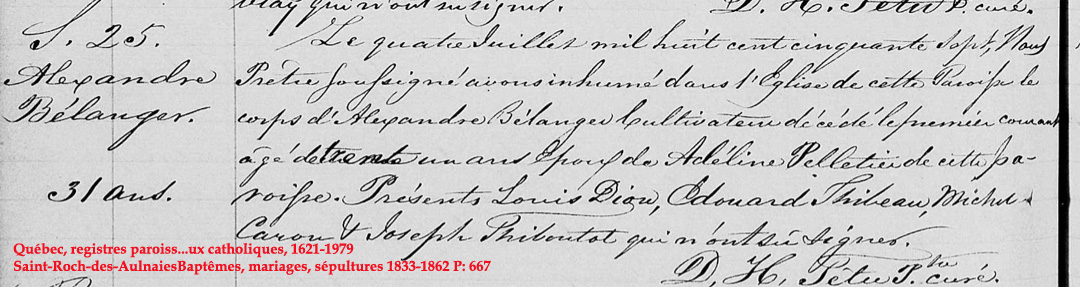 qui n'ont su signer. D. H. Têtu Ptre curé.
S. 25. Le quatre Juillet mil huit cent cinquante Sept, Nous
Alexandre Prêtre Soussigné avons inhumé dans l'Eglise de cette Paroisse le
Bélanger. corps d'Alexandre Bélanger Cultivateur décédé le premier courant
âgé de trente un ans Epoux de Adéline Pelletier de cette pa-
31 ans. roisse. Présents Louis Dion, Edouard Thibeau, Michel
Caron & Joseph Thiboutot qui n'ont su signer.
Québec, registres paroiss...ux catholiques, 1621-1979
Saint-Roch-des-AulnaiesBaptêmes, mariages, sépultures 1833-1862 P: 667
D. H. Têtu Ptre curé.